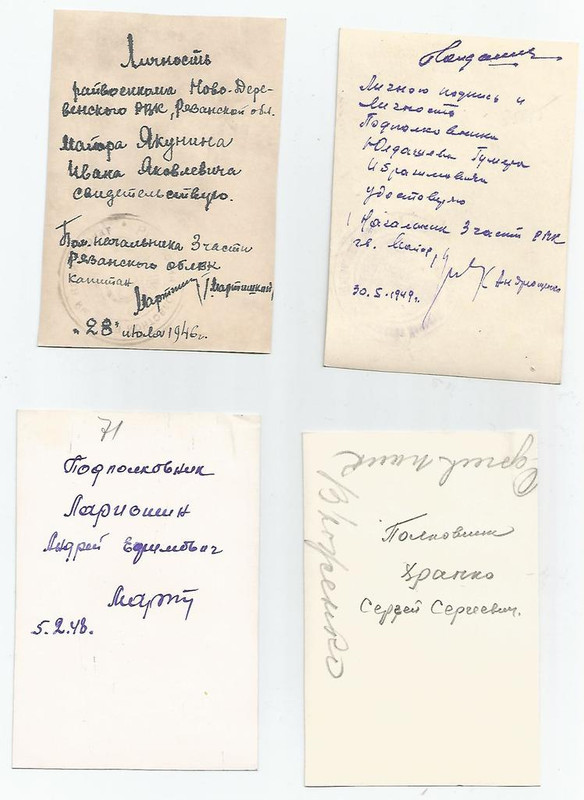 Личность
райвоенкома Ново-Дере-
венского РВК, Рязанской обл.
Майора Якунина
Ивана Яковлевича
свидетельствую.
Пом. начальника 3 части
Рязанского облвк
капитан
(Мартишкой)
"28" июля 1946 г.
Личную подпись и
личность
Подполковника
Юлдашева Гумера
Ибрагимовича
удостоверяю
Начальник 3 части РВК
гв. Майор
30.5.1949 г.
71
Подполковник
Ларюшин
Андрей Ефимович
5.2.48.
Полковник
Храпко
Сергей Сергеевич.